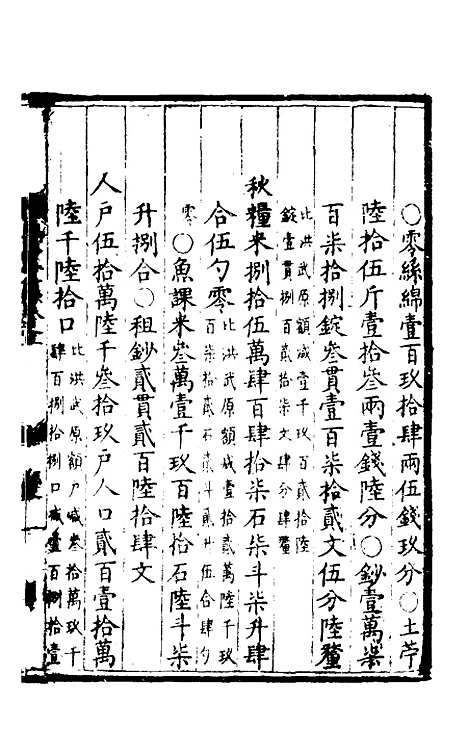 〇零絲綿壹百玖拾肆兩伍錢玖分〇土苧
陸拾伍斤壹拾叁兩壹錢陸分〇鈔壹萬柒
百柒拾捌錠叁貫壹百柒拾貳文伍分陸釐
比洪武原額減壹千玖百陸拾
錠壹貫捌百貳拾柒文肆分肆釐
秋糧米捌拾伍萬肆百肆拾柒石柒斗柒升肆
合伍勺零
比洪武原額減壹拾貳萬陸千玖
百柒拾貳石貳斗貳升伍合肆勺
零
〇魚課米叁萬壹千玖百陸拾石陸斗柒
升捌合〇租鈔貳貫貳百陸拾肆文
人戶伍拾萬陸千叁拾玖戶人口貳百壹拾萬
陸千陸拾口
比洪武原額戶減叁拾萬玖千
肆百捌拾捌口減壹百捌拾壹